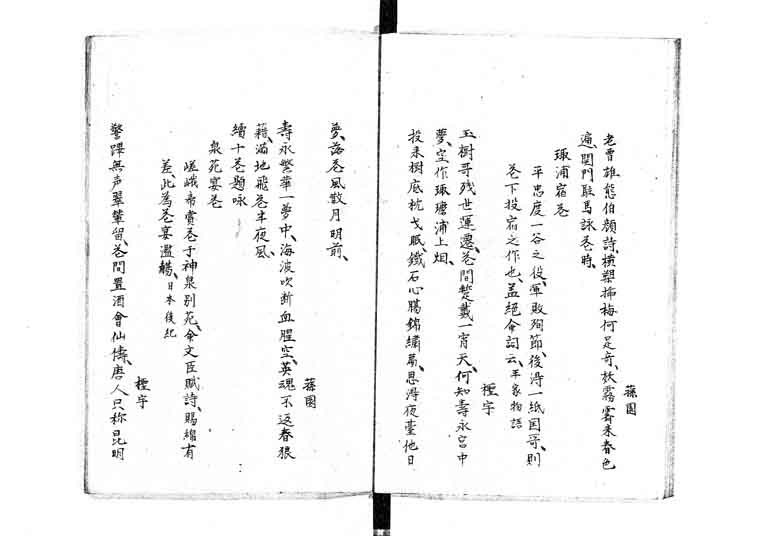 蓀園
老曹雄態伯顔詩、横槊插梅何足奇、妖霧霽来春色
遍、関門駐馬詠花時、
琢浦宿花
平忠度一谷之役、軍敗殉節、後得一紙国哥、則
花下投宿之作也、蓋絶命詞云、平家物語
檉宇
玉樹哥残世運遷、花間蹔戴一宵天、何知壽永宮中
夢、空作琢磨浦上烟、
投来樹底枕戈眠、鐵石心膓錦繍篇、思得夜臺他日
夢、落花風散月明前、
蓀園
壽永繁華一夢中、海波吹断血腥空、英魂不返春狼
藉、満地飛花半夜風、
續十花題咏
泉苑宴花
嵯峨帝賞花于神泉別苑、命文臣賦詩、賜綿有
差、此為花宴濫觴、日本後紀
檉宇
警蹕無声翠輦留、花間置酒會仙儔、唐人只称昆明